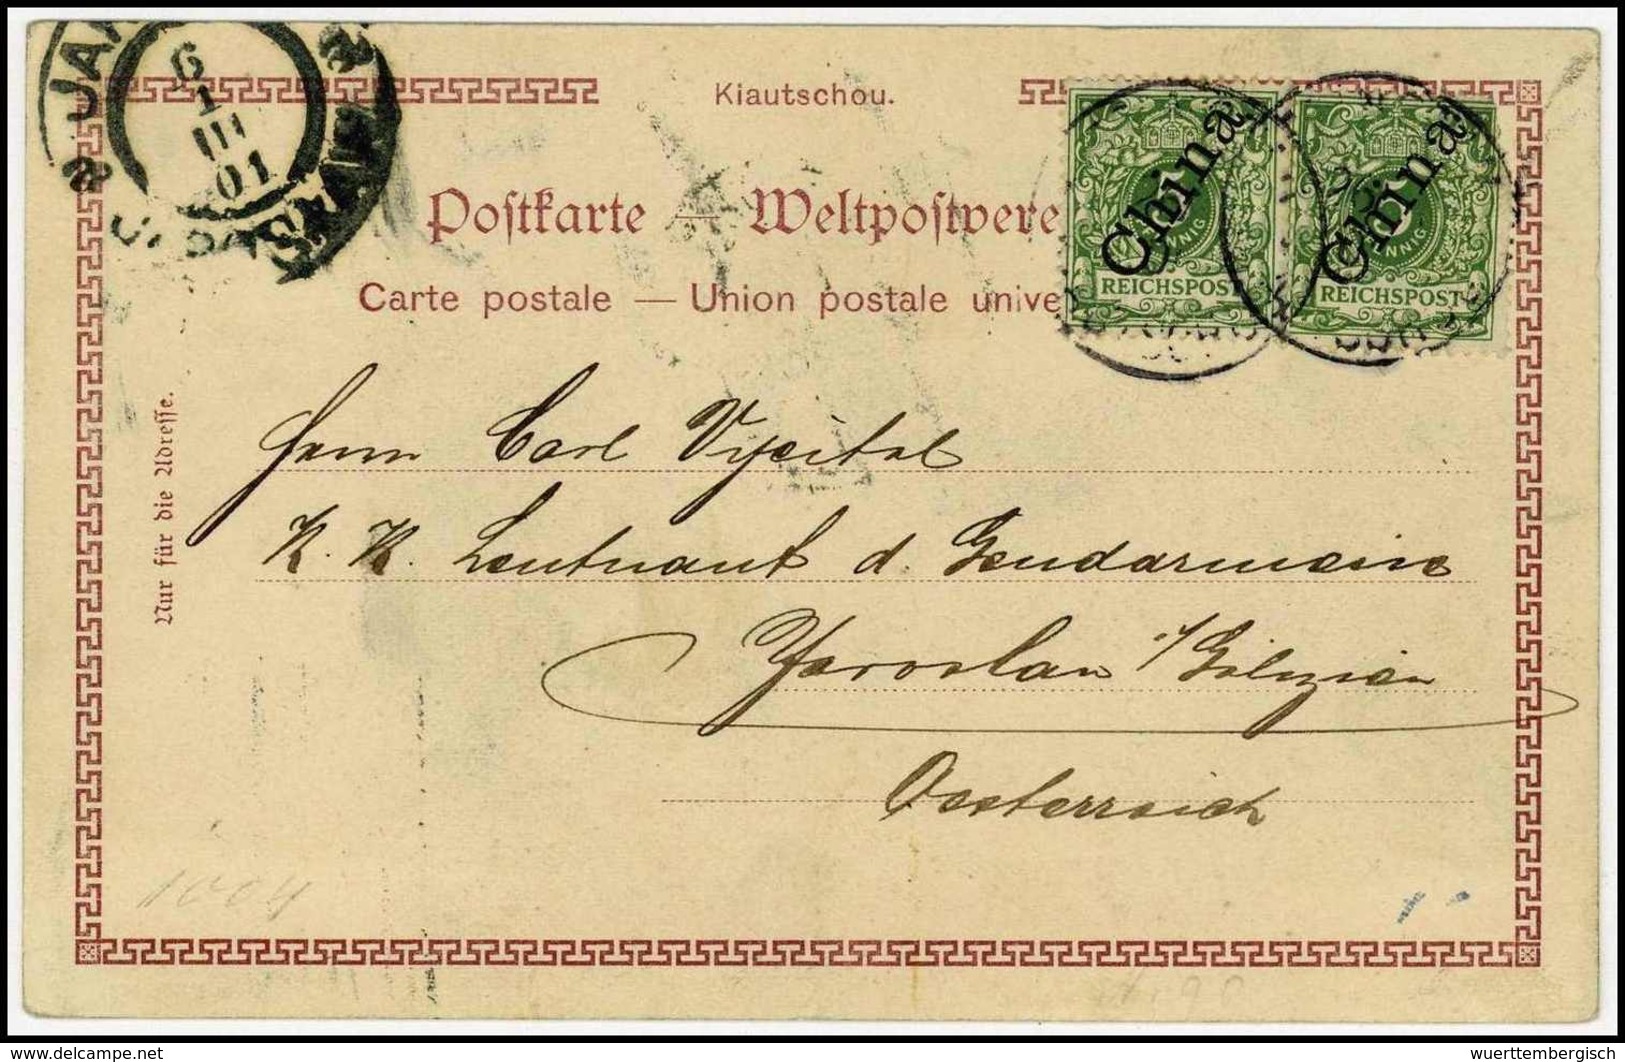 Kiautschou.
Postkarte — Weltpostvere
Carte postale — Union postale unive
China
5
PFENNIG
REICHSPOST
China
5
PFENNIG
REICHSPOST
6
1
III
01
Nur für die Adresse.
Herrn Carl Vycital
K. K. Leutnant d. Gendarmerie
Yaroslau i/Galizien
Oesterreich
1004
delcampe.net
wuerttembergisch